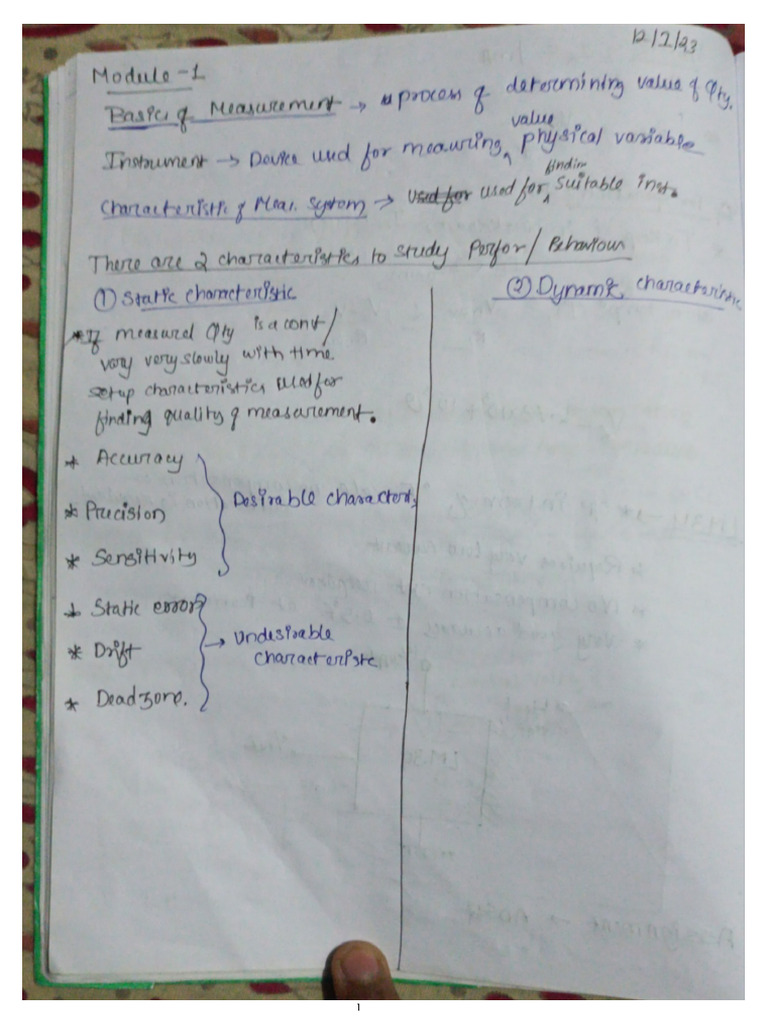 12/2/23
Module-1
Basic of Measurement → process of determining value of Qty.
Instrument → Device used for measuring value physical variable
Characteristic of Meas. System → used for used for finding suitable inst.
There are 2 characteristics to study Perfor/Behaviour
① Static characteristic
* If measured Qty is a const/
vary very slowly with time.
setup characteristics used for
finding quality of measurement.
* Accuracy
* Precision
* Sensitivity
Desirable characterts
* Static error
* Drift
* Dead zone.
→ Undesirable
characteristc
② Dynamic characteristic
1